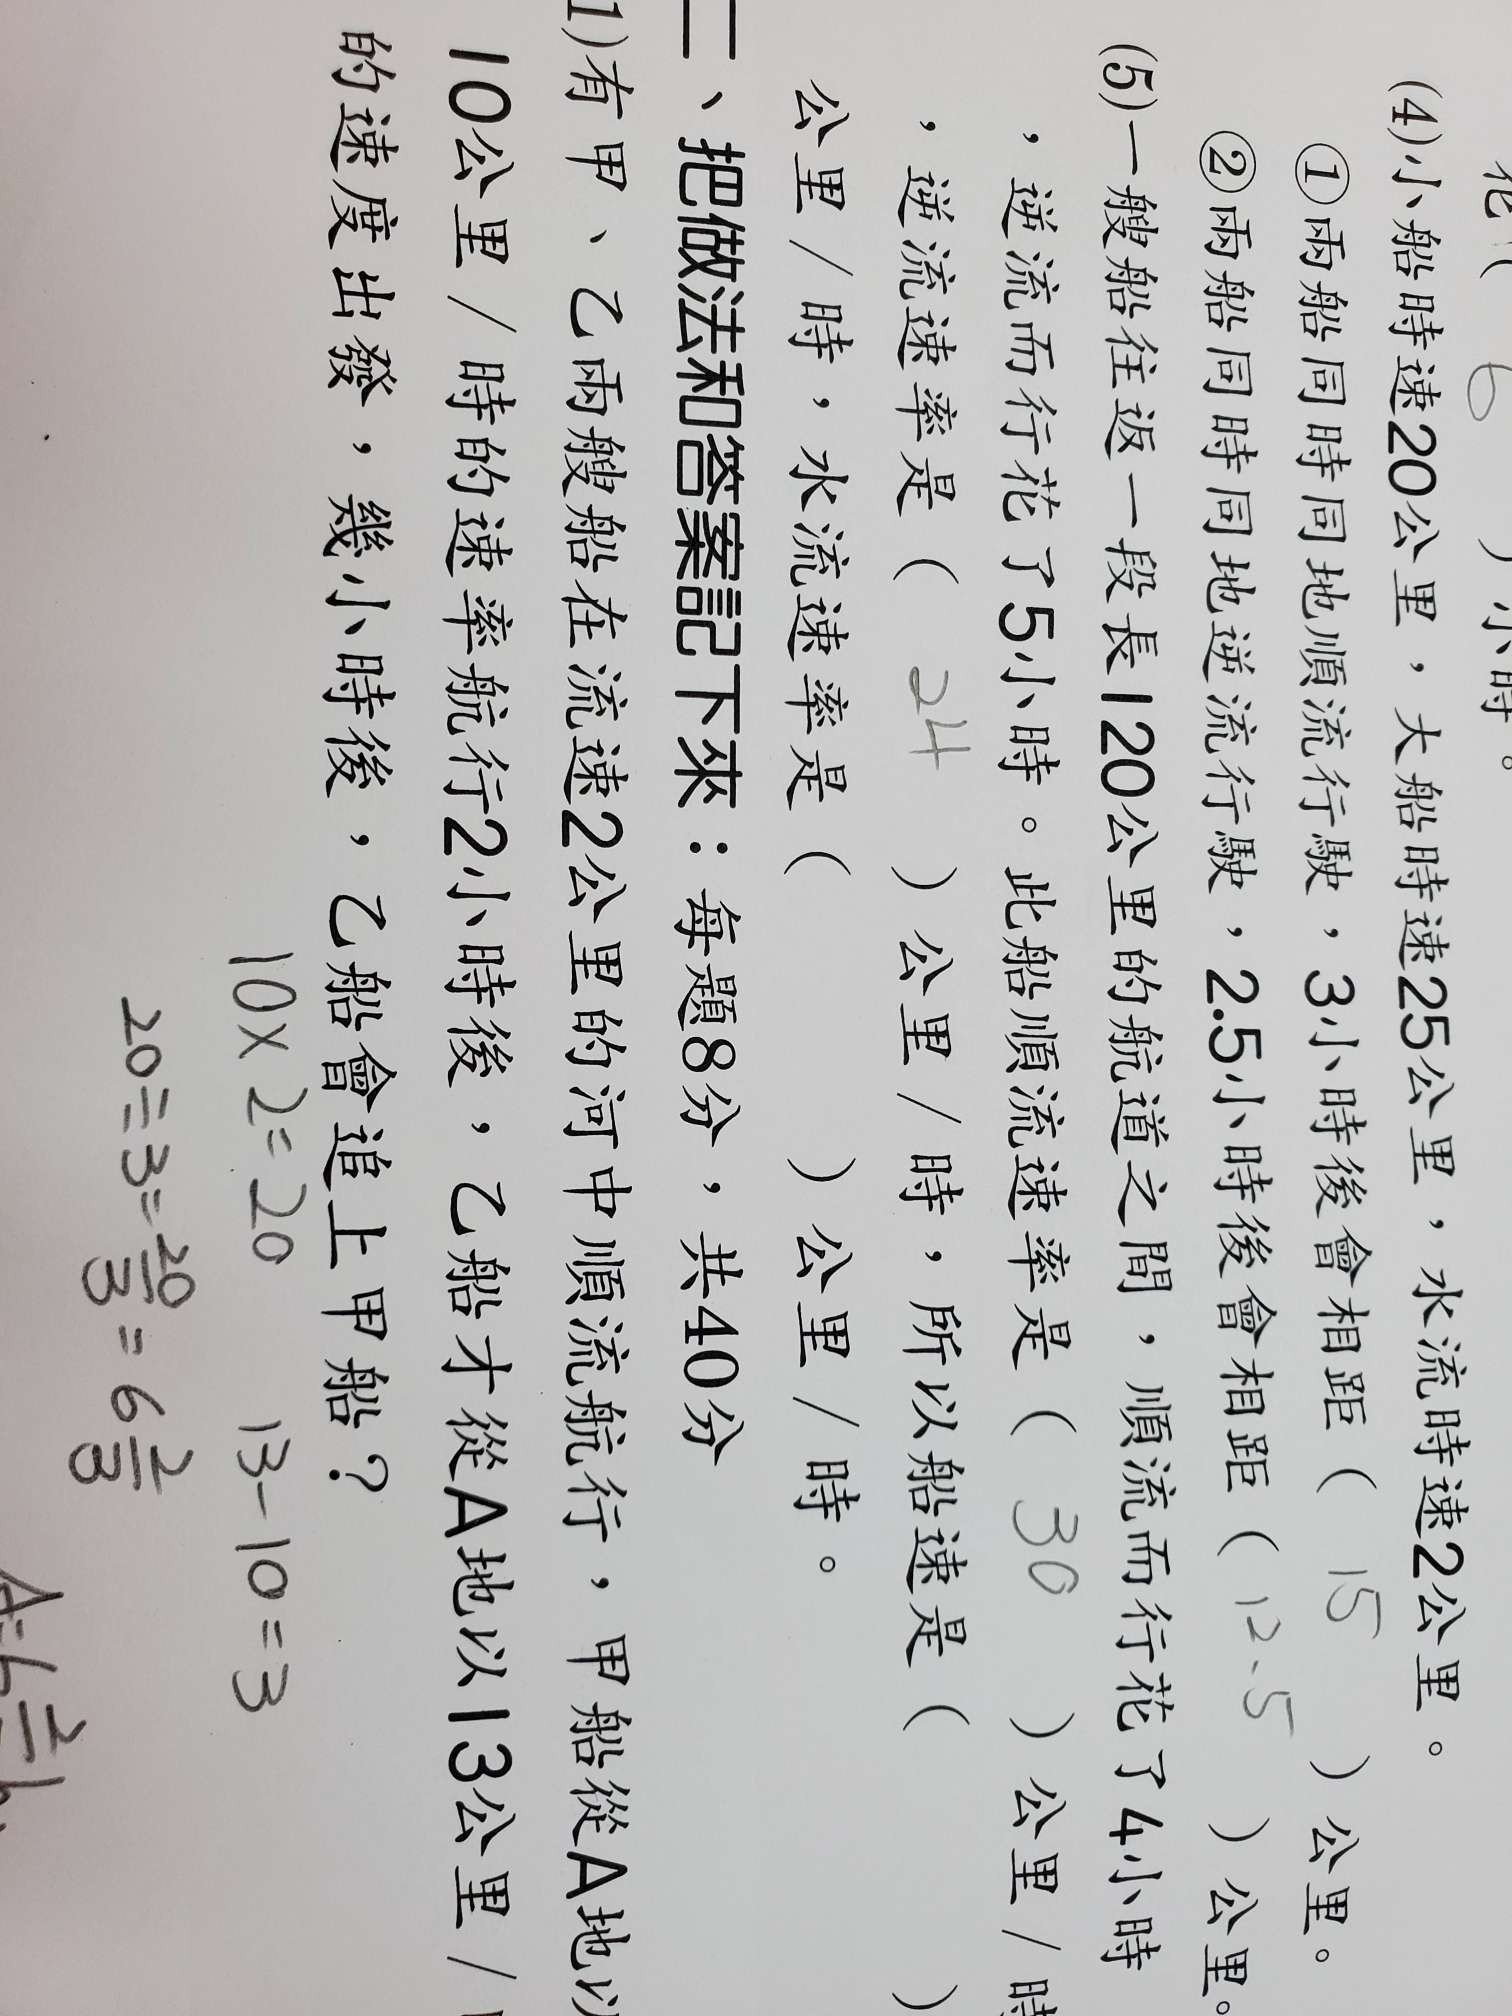 花( 6 )小時。
(4)小船時速20公里,大船時速25公里,水流時速2公里。
①兩船同時同地順流行駛,3小時後會相距( 15 )公里。
②兩船同時同地逆流行駛,2.5小時後會相距( 12.5 )公里。
(5)一艘船往返一段長120公里的航道之間,順流而行花了4小時
,逆流而行花了5小時。此船順流速率是( 30 )公里/時
,逆流速率是( 24 )公里/時,所以船速是( )
公里/時,水流速率是( )公里/時。
二、把做法和答案記下來:每題8分,共40分
1)有甲、乙兩艘船在流速2公里的河中順流航行,甲船從A地以
10公里/時的速率航行2小時後,乙船才從A地以13公里/
的速度出發,幾小時後,乙船會追上甲船?
10×2=20 13-10=3
20÷3=20/3=6 2/3